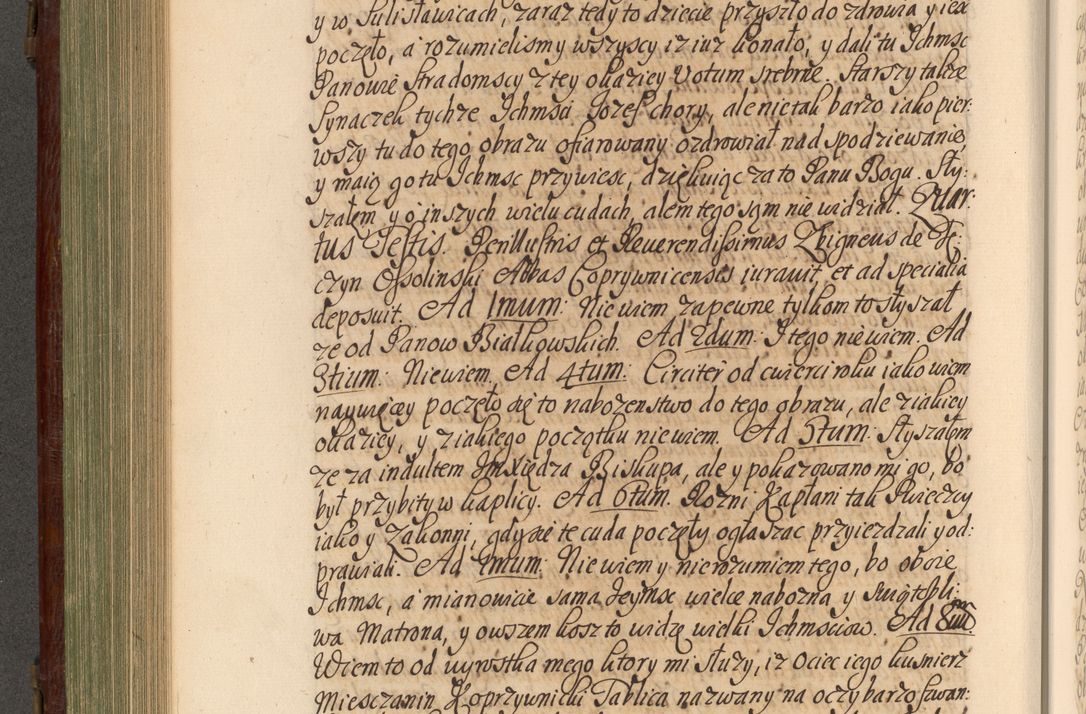 y w Sulisławicach, zaraz tedy to dziecie przyszło do zdrowia y iesc
poczęło, a rozumielismy wszyscy iz iuz konało, y dali tu Ichmsc
Panowie Stradomscy z tey okaziey Votum srebrne. Starszy takze
Synaczek tychze Ichmsci Iozef chory, ale nie tak barzo iako pier:
wszy tu do tego obrazu ofiarowany ozdrowiał nad spodziewanie,
y maią go tu Ichmsc przywiesc, dziękuiąc za to Panu Bogu. Sły:
szałem y o inszych wielu cudach, alem tego sąm nie widział. Quar:
tus Testis. Perillustris et Reverendissimus Zbigneus de Te:
czyn Ossolinski Abbas Coprywnicensis iuravit, et ad specialia
deposuit. Ad 1mum: Nie wiem zapewne tylkom to słyszał
ze od Panow Białkowskich. Ad 2dum: I tego nie wiem. Ad
3tium: Nie wiem. Ad 4tum: Circiter od cwierci roku iako wiem
naywięcey poczęło się to nabozenstwo do tego obrazu, ale z iakiey
okaziey, y z iakiego początku nie wiem. Ad 5tum: Słyszałem
ze za indultem Im Xiędza Biskupa, ale y pokazowano mi go, bo
był przybity w kaplicy. Ad 6tum. Rozni Kapłani tak Swieccy
iako y Zakonni, gdy się te cuda poczęły ogłaszac przyiezdzali y od:
prawiali. Ad 7mum: Nie wiem y nierozumiem tego, bo oboie
Ichmsc, a mianowicie sama Ieymsc wielce nabozna y swiątobli:
wa Matrona, y owszem koszto widzę wielki Ichmsciow. Ad 8um.
Wiem to od wyrostka mego ktory mi słuzy, iz ociec iego kusnierz
Miesczanin Koprzywnicki Tablica nazwany na oczy barzo szwan: